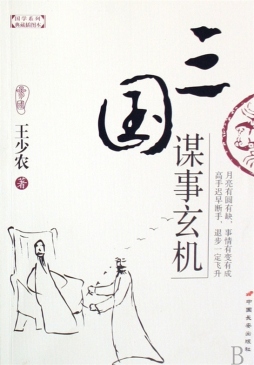 国学系列
典藏插图本
三国
谋事玄机
王少农
著
月亮有圆有缺，事情有变有成
高手迟早断手，退步一定飞升
中国长安出版社
B